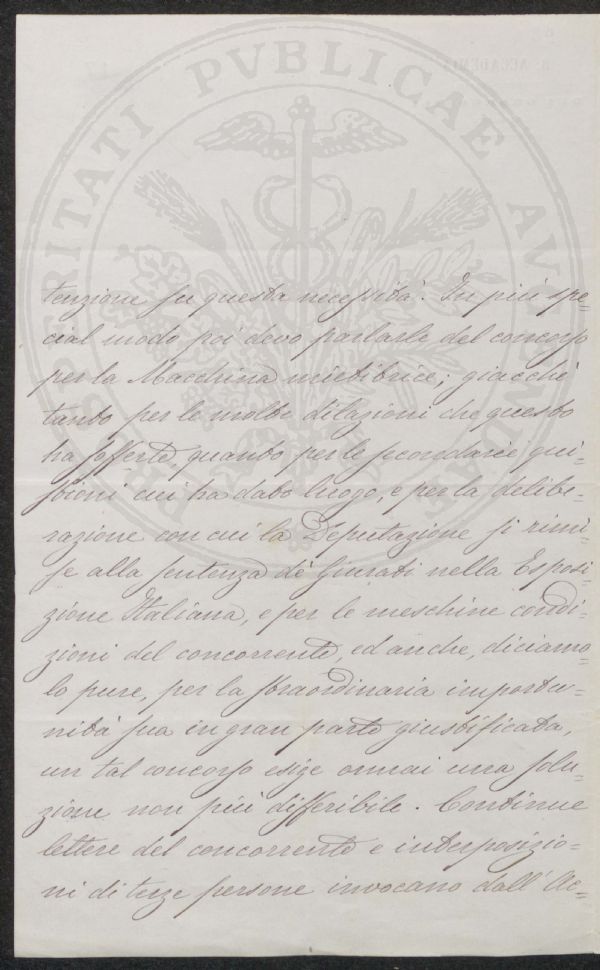 PROSPERITATI PVBLICAE AVGENDAE
tenzione su questa necessità. In più spe=
cial modo poi devo parlarle del concorso
per la Macchina mietitrice; giacchè
tanto per le molte dilazioni che questo
ha sofferte quanto per le secondarie qui=
stioni cui ha dato luogo, e per la delibe=
razione con cui la Deputazione si rimi=
se alla sentenza de' Giurati nella Esposi=
zione Italiana, e per le meschine condi=
zioni del concorrente, ed anche, diciamo=
lo pure, per la straordinaria importu=
nità sua in gran parte giustificata,
un tal concorso esige omai una solu=
zione non più differibile. Continue
lettere del concorrente e interposizio=
ni di terze persone invocano dall'Ac=